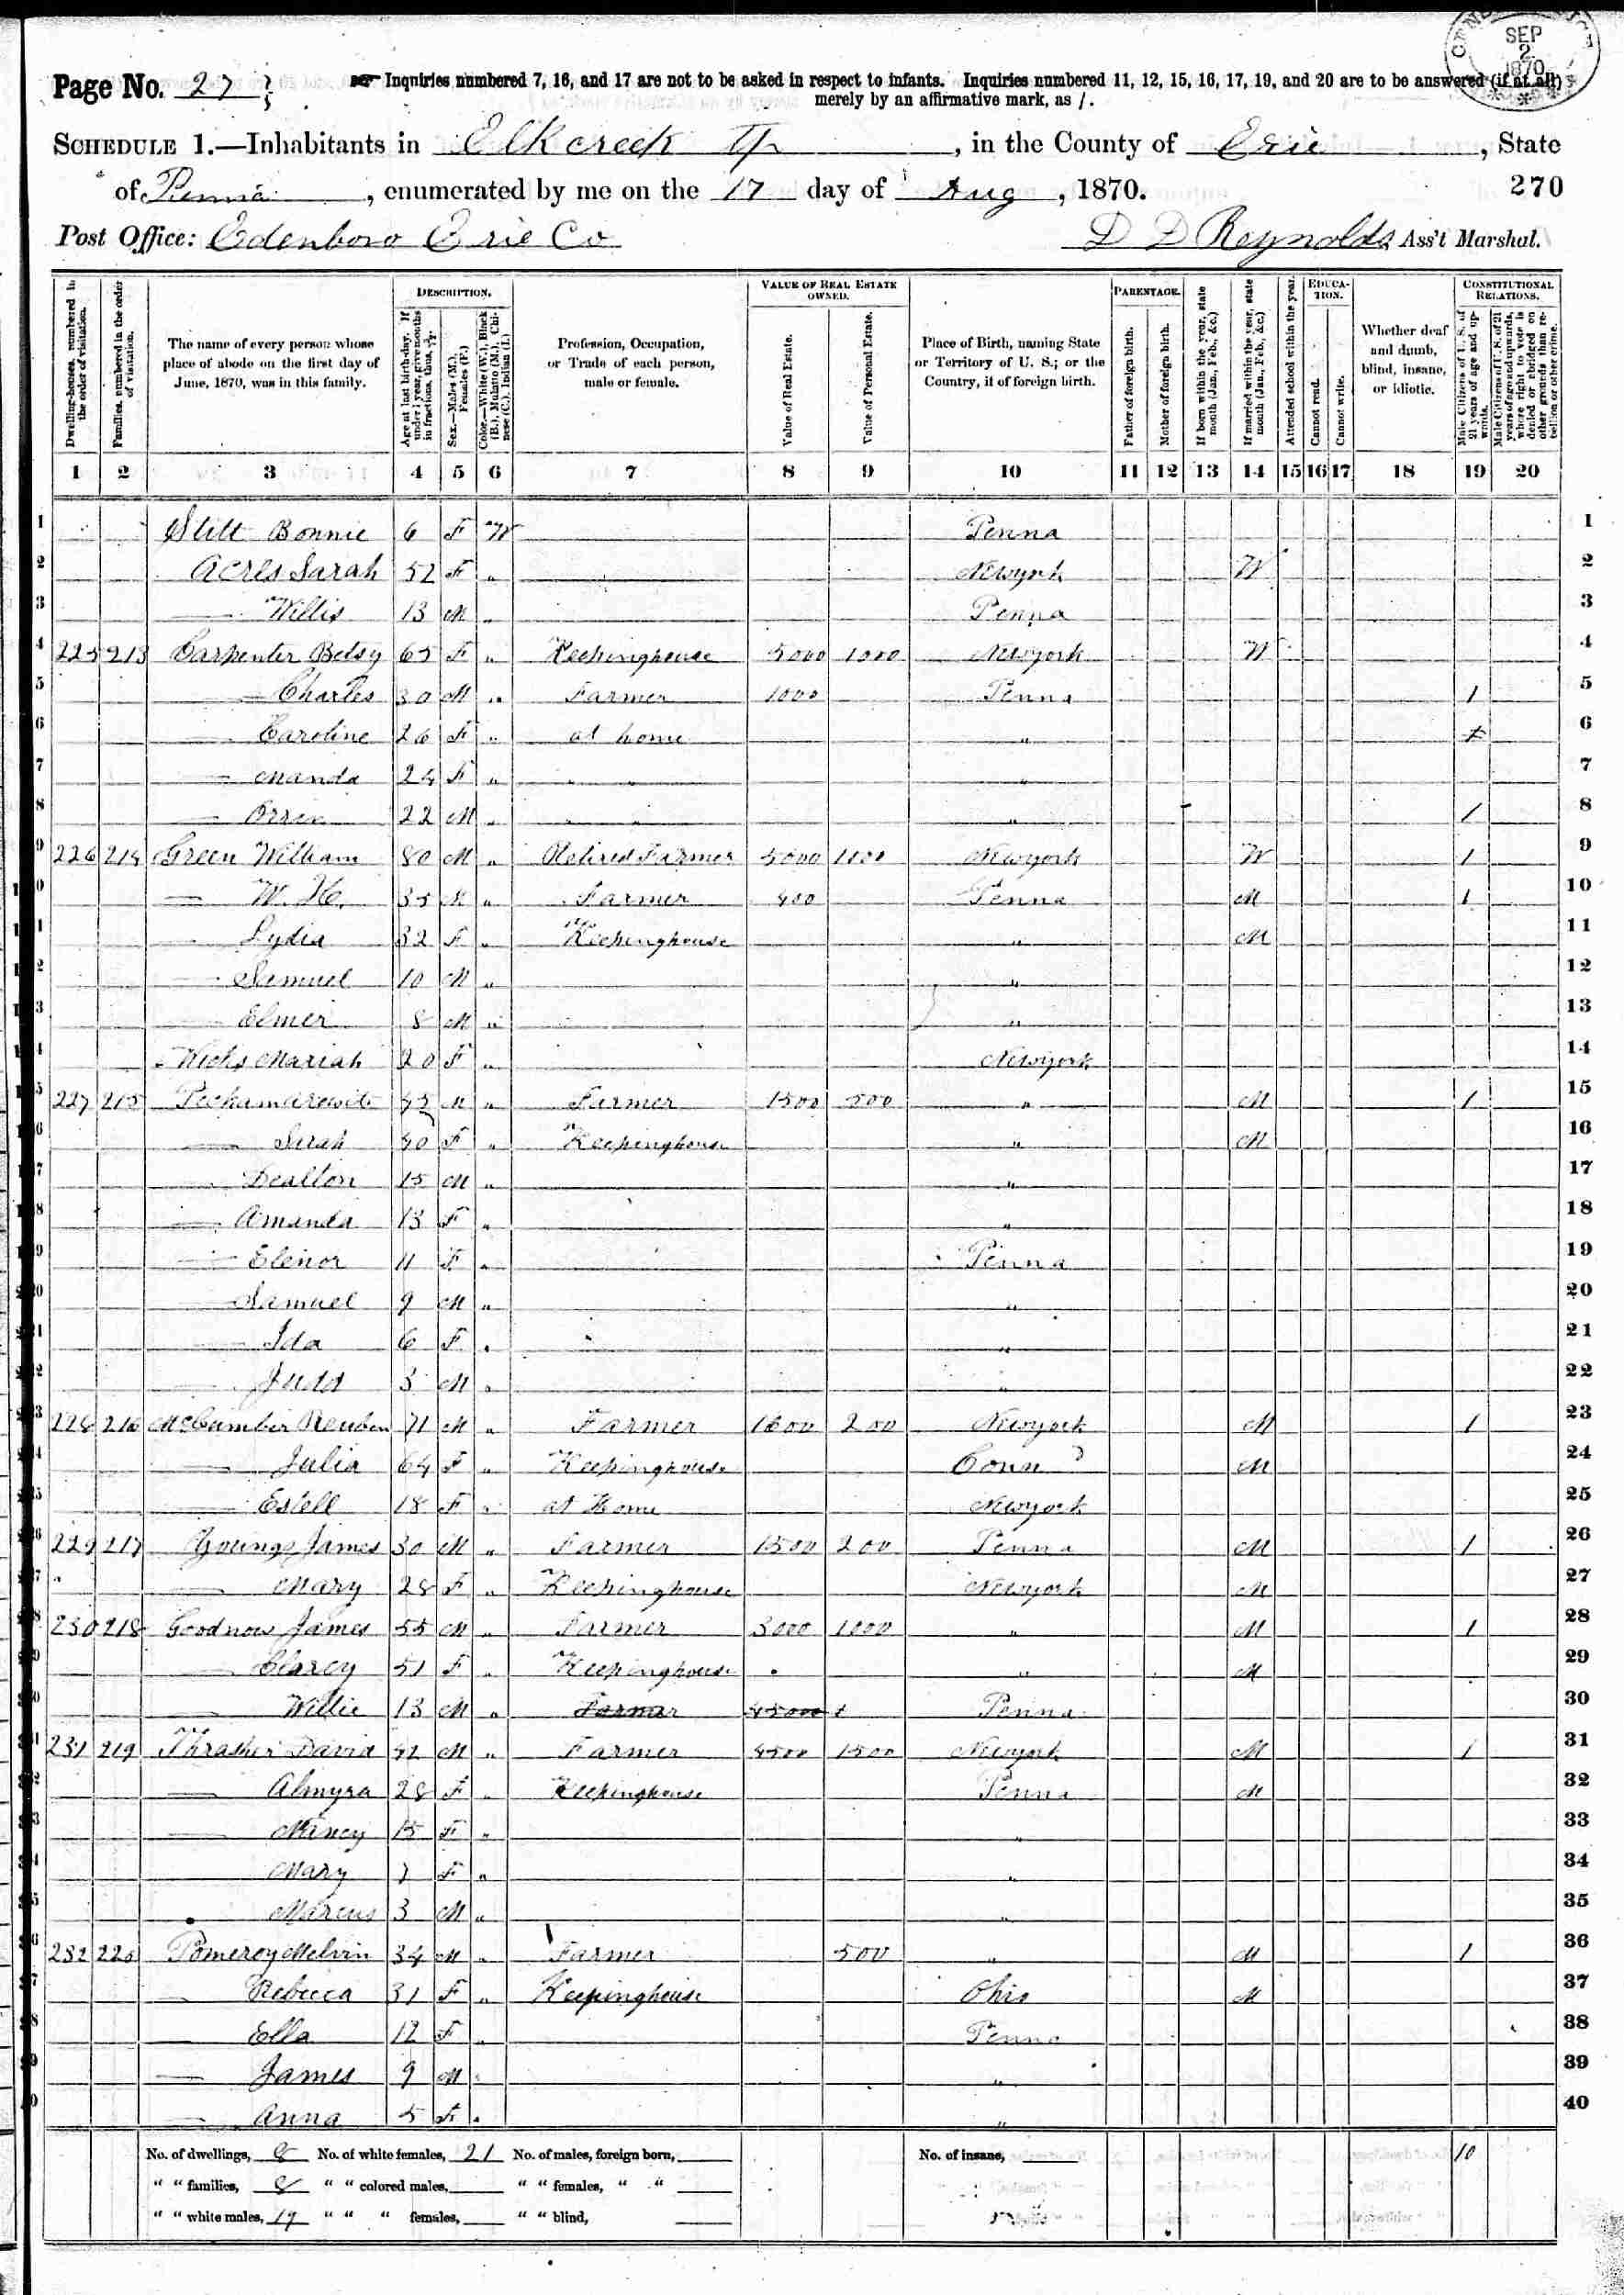 CEN
SEP
2
1870
Page No. 27
Inquiries numbered 7, 16, and 17 are not to be asked in respect to infants. Inquiries numbered 11, 12, 15, 16, 17, 19, and 20 are to be answered (if at all)
merely by an affirmative mark, as /.
SCHEDULE 1.—Inhabitants in Elkcreek Tp, in the County of Erie, State
of Penna, enumerated by me on the 17 day of Aug, 1870.
270
Post Office: Edenboro Erie Co
D D Reynolds, Ass't Marshal.
Dwelling-houses, numbered in the order of visitation.
Families, numbered in the order of visitation.
The name of every person whose place of abode on the first day of June, 1870, was in this family.
DESCRIPTION.
Age at last birth-day. If under 1 year, give months in fractions, thus,
Sex.—Males (M.), Females (F.)
Color.—White (W.), Black (B.), Mulatto (M.), Chinese (C.), Indian (I.)
Profession, Occupation, or Trade of each person, male or female.
VALUE OF REAL ESTATE OWNED.
Value of Real Estate.
Value of Personal Estate.
Place of Birth, naming State or Territory of U. S.; or the Country, if of foreign birth.
PARENTAGE.
Father of foreign birth.
Mother of foreign birth.
If born within the year, state month (Jan., Feb., &c.)
If married within the year, state month (Jan., Feb., &c.)
Attended school within the year.
EDUCATION.
Cannot read.
Cannot write.
Whether deaf and dumb, blind, insane, or idiotic.
CONSTITUTIONAL RELATIONS.
Male Citizens of U. S. of 21 years of age and upwards.
Male Citizens of U. S. of 21 years of age and upwards, whose right to vote is denied or abridged on other grounds than rebellion or other crime.
1 2 3 4 5 6 7 8 9 10 11 12 13 14 15 16 17 18 19 20
1 Stitt Bonnie 6 F W Penna 1
2 Acres Sarah 52 F " Newyork W 2
3 — Willis 13 M " Penna 3
4 225 213 Carpenter Betsy 65 F " Keepinghouse 5000 1000 Newyork W 4
5 — Charles 30 M " Farmer 1000 Penna 1 5
6 — Caroline 26 F " at home " 6
7 — Manda 24 F " " " " 7
8 — Orren 22 M " " " " 1 8
9 226 214 Green William 80 M " Retired Farmer 5000 1100 Newyork W 1 9
10 — W. H. 35 M " Farmer 400 Penna M 1 10
11 — Lydia 32 F " Keepinghouse " M 11
12 — Samuel 10 M " " 12
13 — Elmer 8 M " " 13
14 Mariah 20 F " Newyork 14
15 227 215 M " Farmer 1500 500 " M 1 15
16 — Sarah 40 F " Keepinghouse " M 16
17 — Dealton 15 M " " 17
18 — Amanda 13 F " " 18
19 — Elenor 11 F " Penna 19
20 — Samuel 9 M " " 20
21 — Ida 6 F " " 21
22 — Judd 3 M " " 22
23 228 216 McCumber Reuben 71 M " Farmer 1600 200 Newyork M 1 23
24 — Julia 64 F " Keepinghouse Conn M 24
25 — Estell 18 F " at Home Newyork 25
26 229 217 Youngs James 30 M " Farmer 1500 200 Penna M 1 26
27 — Mary 28 F " Keepinghouse Newyork M 27
28 230 218 Goodnow James 55 M " Farmer 3000 1000 " M 1 28
29 — Clarcy 51 F " Keepinghouse " M 29
30 — Willie 13 M " Farmer Penna 30
31 231 219 Thrasher David 42 M " Farmer 4500 1500 Newyork M 1 31
32 — Almyra 28 F " Keepinghouse Penna M 32
33 — Nancy 15 F " " 33
34 — Mary 7 F " " 34
35 — Marcus 3 M " " 35
36 232 220 Pomeroy Melvin 34 M " Farmer 500 " M 1 36
37 — Rebecca 31 F " Keepinghouse Ohio M 37
38 — Ella 12 F " Penna 38
39 — James 9 M " " 39
40 — Anna 5 F " " 40
No. of dwellings, 8 No. of white females, 21 No. of males, foreign born, No. of insane, 10
" " families, 8 " " colored males, " " females, " "
" " white males, 19 " " " females, " " blind,